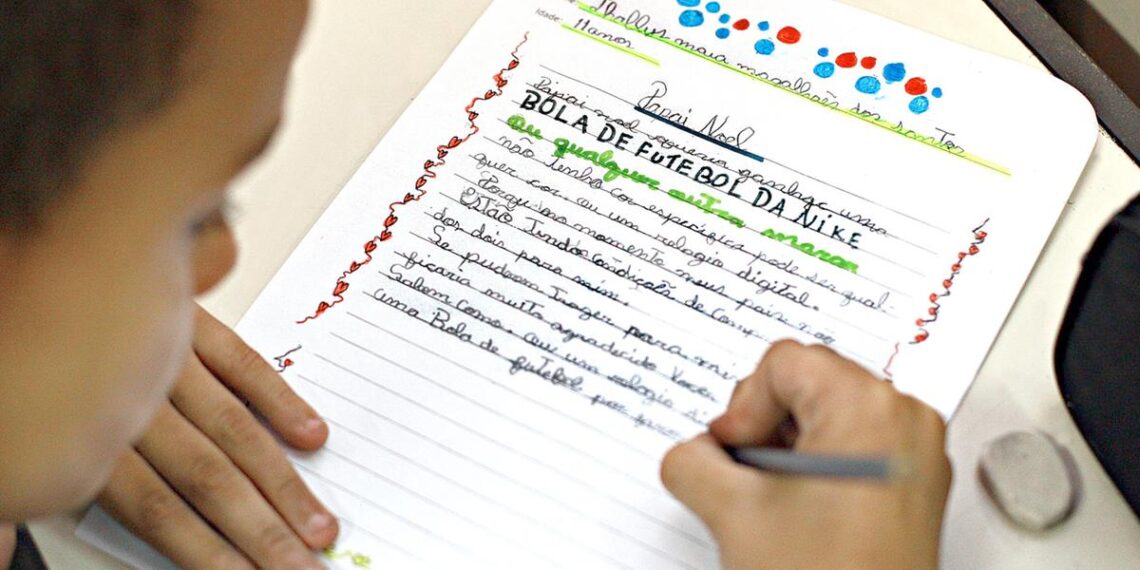 Idade: 11 anos
Thallys maia magalhães dos santos
Papai Noel
Papai noel eu queria ganhar uma
BOLA DE FUTEBOL DA NIKE
ou qualquer outra marca
não tenho cor especifica pode ser qual-
quer cor. ou um relogio digital.
Porque no momento meus pais não
ESTÃO Tendo condição de comp
dos dois para mim.
Se pudera trazer para mim
ficaria muito agradecido
uma Bola de futebol por favor